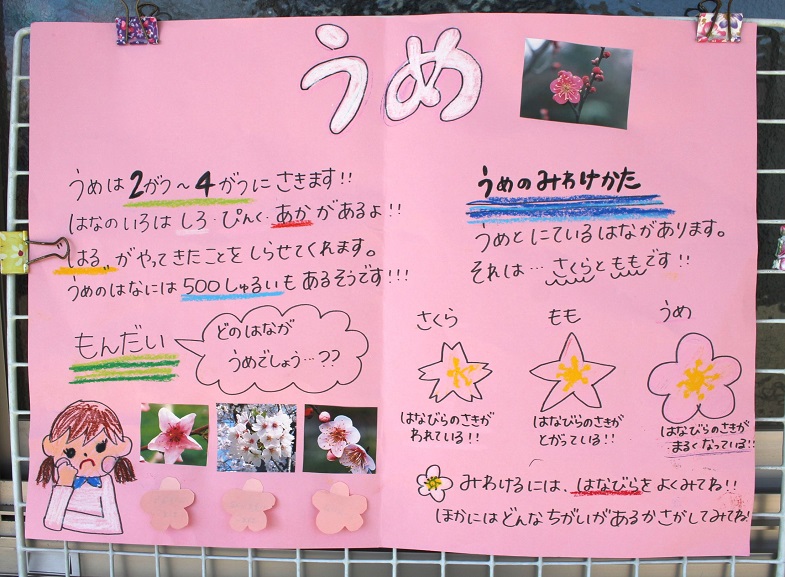 うめ
うめは2がつ～4がつにさきます!!
はなのいろはしろ・ぴんく・あかがあるよ!!
はるがやってきたことをしらせてくれます。
うめのはなには500しゅるいもあるそうです!!!
もんだい
どのはなが
うめでしょう…??
うめのみわけかた
うめとにているはながあります。
それは…さくらとももです!!
さくら
はなびらのさきが
われている!!
もも
はなびらのさきが
とがっている!!
うめ
はなびらのさきが
まるくなっている!!
みわけるには、はなびらをよくみてね!!
ほかにはどんなちがいがあるかさがしてみてね!